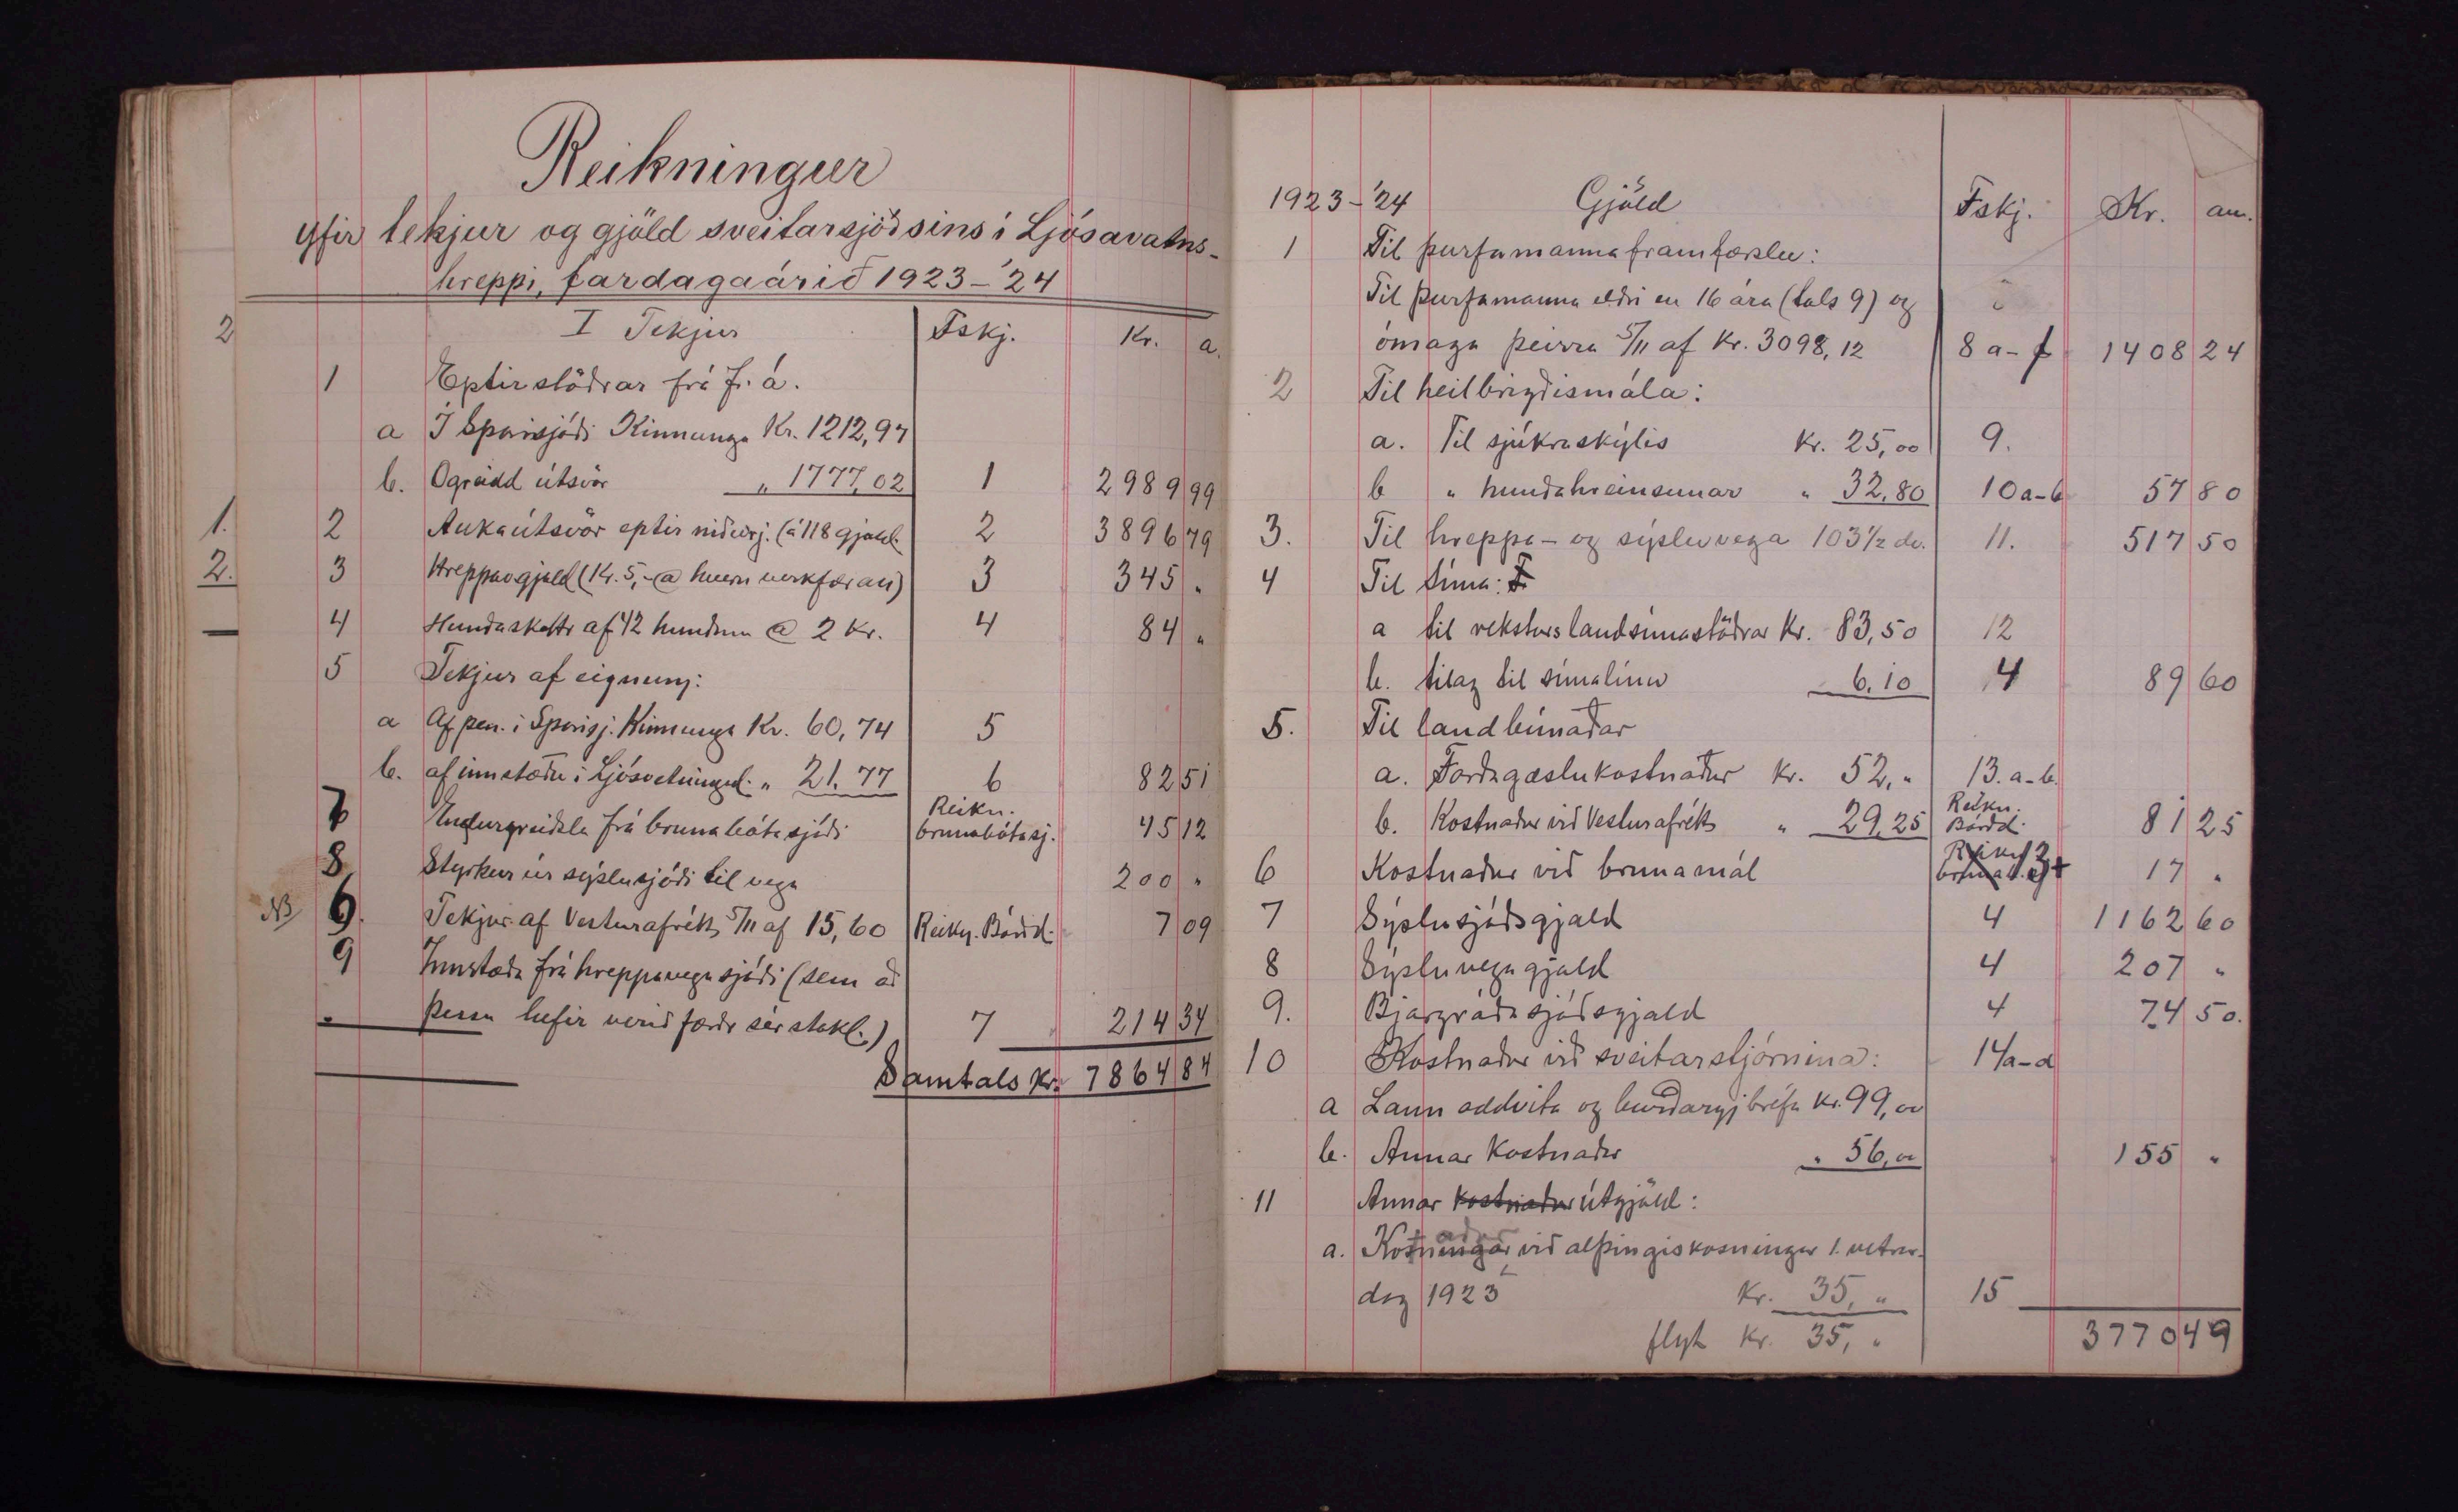 Reikningur
yfir tekjur og gjöld sveitarsjóðsins í Ljósavatns-
hreppi, fardagaárið 1923-'24
2 I Tekjur Fskj. Kr. a.
1 Eptirstöðvar frá f. á.
a Í Sparisjóði Kinnunga Kr. 1212,97
b. Ógreidd útsvör " 1777,02 1 2989 99
1. 2 Aukaútsvör eptir niðurj. (á 118 gjald. 2 3896 79
2. 3 Hreppsvgjald (Kr. 5,- @ hvern verkfæran) 3 345 "
4 Hundaskattr af 42 hundum @ 2 Kr. 4 84 "
5 Tekjur af eignum:
a Af pen. í Sparisj. Kinnunga Kr. 60,74 5
b. af innstæðu í Ljósvetninga " 21.77 6 82 51
7 Endurgreiðsla frá brunabótasjóði Reikn. brunabótasj. 45 12
8 Styrkur úr sýslusjóði til vega 200 "
NB 6. Tekjur af Vesturafrétt 5/11 af 15,60 Reikn. Bárðd. 7 09
9 Innstæða frá hreppsvegasjóði (sem að
þessu hefir verið færðr sér stakl.) 7 214 34
Samtals Kr. 7864 84
1923-'24 Gjöld Fskj. Kr. au.
1 Til þurfamannaframfærslu:
Til þurfamanna eldri en 16 ára (tals 9) og
ómaga þeirra 5/11 af Kr. 3098,12 8 a-f 1408 24
2 Til heilbrigðismála:
a. Til sjúkraskýlis Kr. 25,00 9.
b " hundahreinsunar " 32,80 10a-b 57 80
3. Til hreppa- og sýsluvega 103 1/2 dv. 11. 517 50
4 Til síma:
a til reksturs landsímastöðvar Kr. 83,50 12
b. tilag til símalínu 6.10 4 89 60
5. Til landbúnaðar
a. Forðagæslukostnaður Kr. 52, " 13. a-b.
b. Kostnaður við Vesturafrétt " 29,25 Reikn. Bárðd. 81 25
6 Kostnaður við brunamál 17 "
7 Sýslusjóðsgjald 4 1162 60
8 Sýsluvegagjald 4 207 "
9. Bjargráðasjóðsgjald 4 74 50.
10 Kostnaður við sveitarstjórnina: 14a-d
a Laun oddvita og burðargj. bréfa Kr. 99,00
b. Annar kostnaður " 56,00 155 "
11 Annar kostnaður útgjöld:
a. Kostnaður við alþingiskosningar 1. vetrar-
dag 1923 Kr. 35, " 15
flyt Kr. 35, " 3770 49